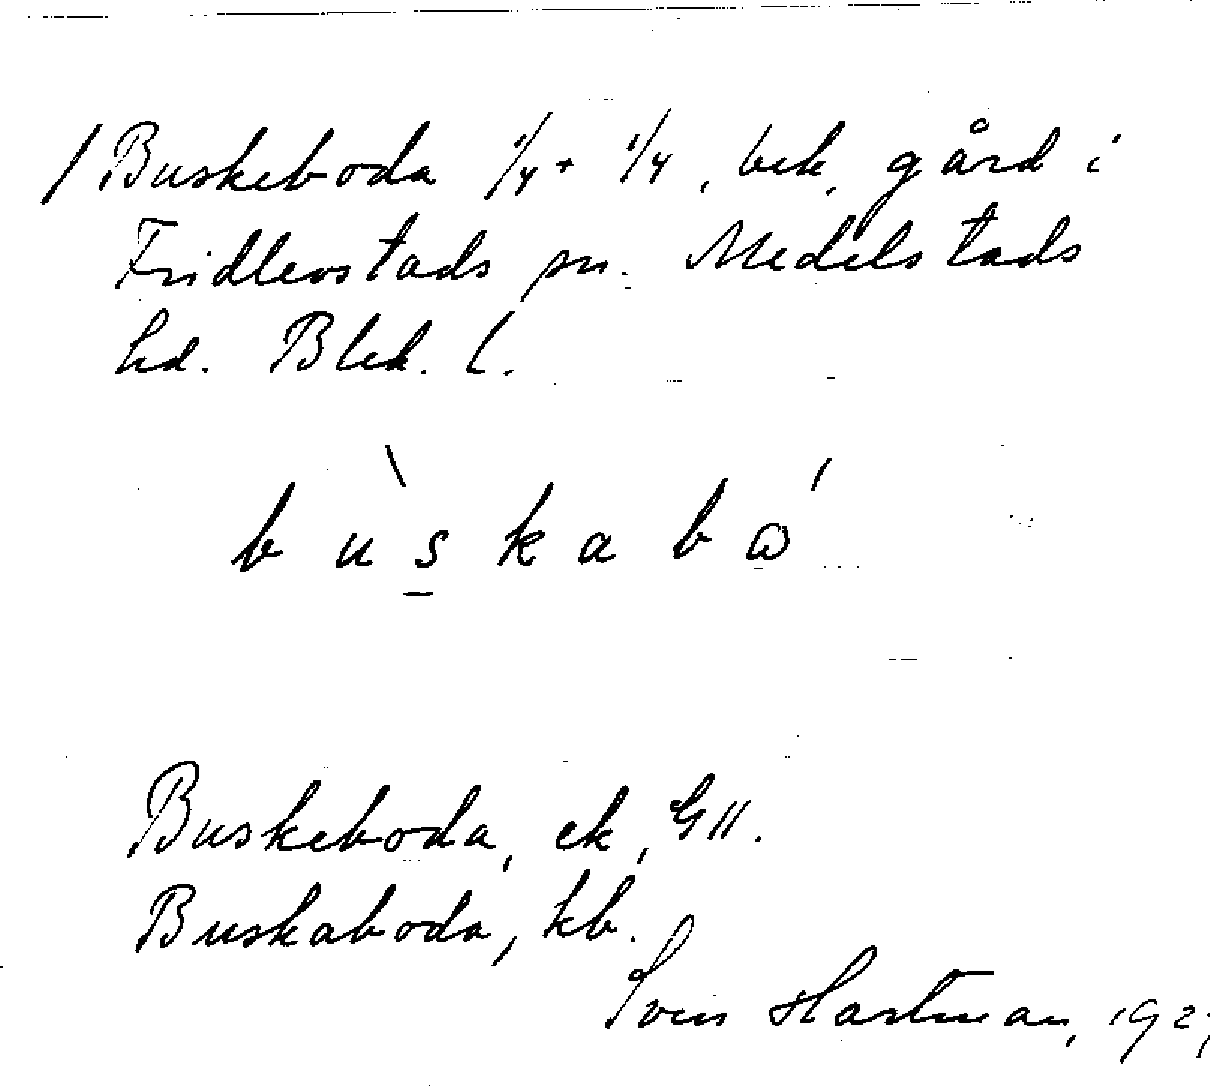 / Buskeboda 1/4 + 1/4, bek. gård i
Fridlevstads sn. Medelstads
hd. Blek. l.
bùskabω´
Buskeboda, ek, GII.
Buskaboda, kb.
Sven Hartman, 192